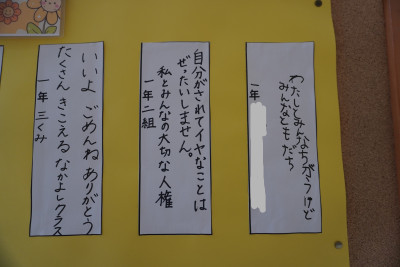 わたしとみんなちがうけど
みんなともだち
一年
自分がされてイヤなことは
ぜったいしません。
私とみんなの大切な人権
一年二組
いいよ ごめんね ありがとう
たくさん きこえる なかよしクラス
一年 三くみ